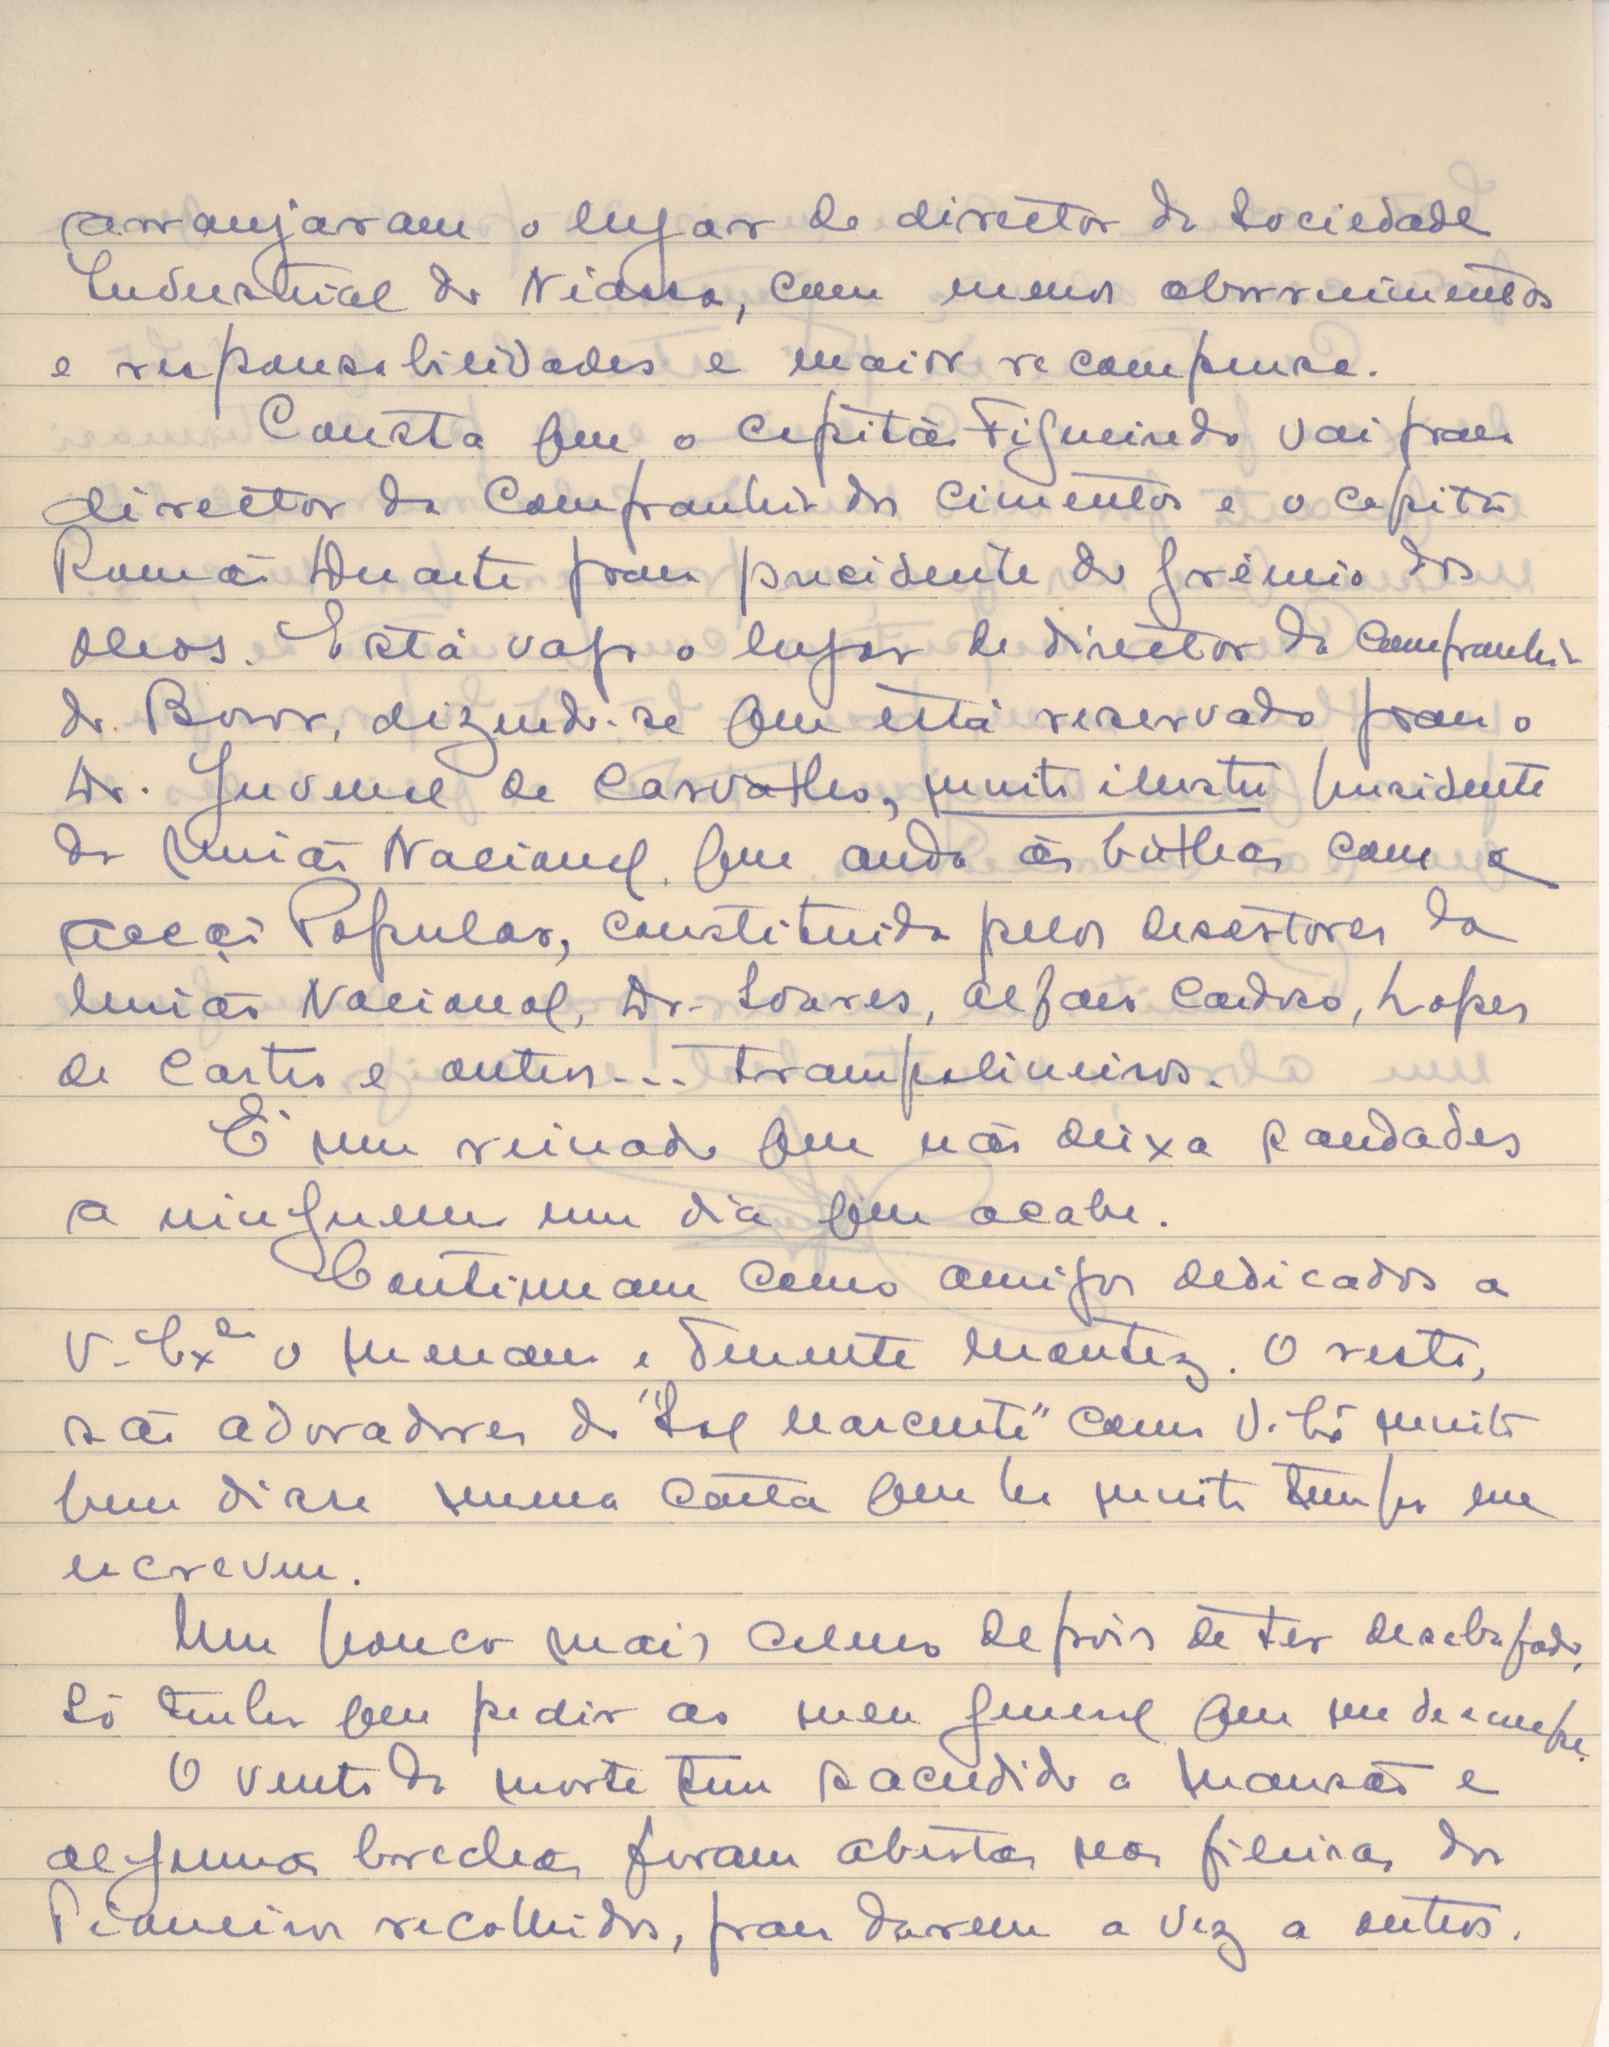 arranjaram o lugar de director da Sociedade
Industrial do Niassa, com menos aborrecimentos
e responsabilidades e maior recompensa.
Consta que o capitão Figueiredo vai para
director da Companhia dos Cimentos e o capitão
Romão Duarte para presidente do Grémio dos
oleos. Está vago o lugar de director da Companhia
do Boror, dizendo-se que está reservado para o
Dr. Juvenal de Carvalho, muito ilustre presidente
da União Nacional, que anda às bulhas com a
Acção Popular, constituida pelos desertores da
União Nacional, Dr. Soares, Cardoso, Lopes
de Castro e outros... trampolineiros.
É um reinado que não deixa saudades
a ninguem um dia que acabe.
Continuam como amigos dedicados a
V. Exª o e Tenente Montez. O resto,
são adoradores do "Sol nascente" como V. Exª muito
bem disse numa carta que ha muito tempo me
escreveu.
Um pouco mais calmo depois de ter desabafado,
só tenho que pedir ao meu general que me desculpe.
O vento da morte tem sacudido a mansão e
algumas brechas foram abertas nas fileiras dos
Pioneiros recolhidos, para darem a vez a outros.